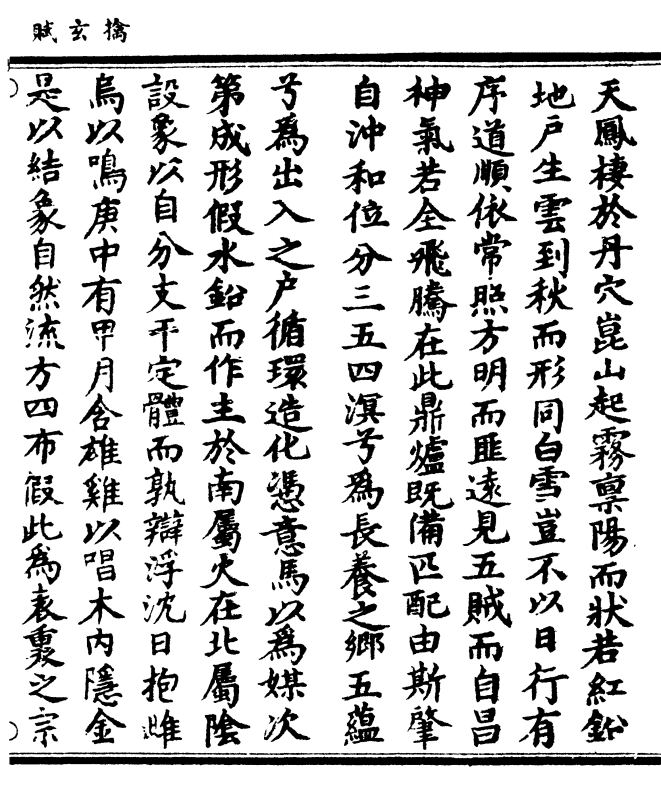 擒玄賦
天鳳棲於丹穴崑山起霧禀陽而狀若紅鉛
地戶生雲到秋而形同白雪豈不以日行有
序道順依常照方明而匪遠見五賊而自昌
神氣若全飛騰在此鼎爐既備匹配由斯肇
自沖和位分三五四溟兮為長養之鄉五蘊
兮為出入之户循環造化憑意馬以為媒次
第成形假水鉛而作主於南屬火在北屬陰
設象以自分支干定體而孰辯浮沈日抱雌
烏以鳴庚中有甲月含雄雞以唱木內隱金
是以結象自然流方四布假此為表裏之宗